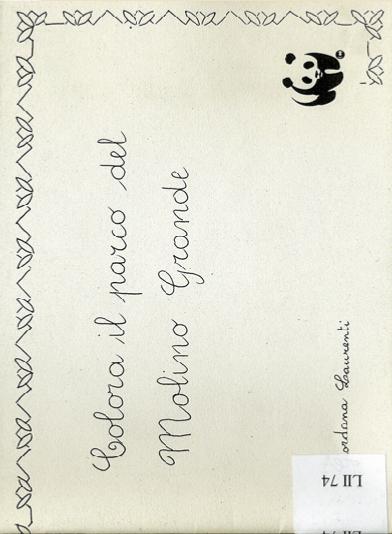 Colora il parco del
Molino Grande
ordana Laurenti
LII 74